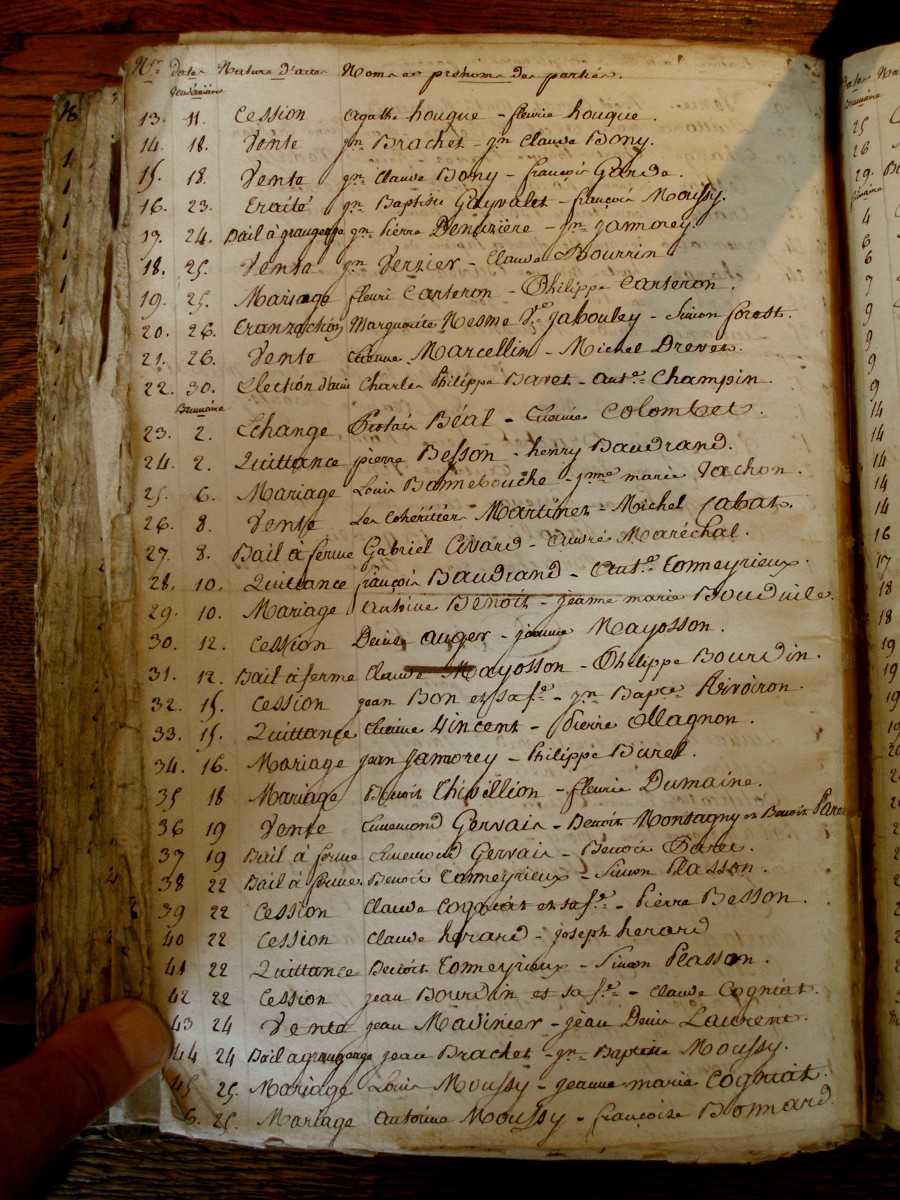 Nos Dates Nature d'actes Noms et prénoms des parties.
Vendémiaire
13. 11. Cession Agathe houque - fleurie houque.
14. 18. Vente jn. Brachet - jn. Claude Bony.
15. 18. Vente jn. Claude Bony - françois Garde.
16. 23. Traité jn. Baptiste Guyvalet - françois Moussy.
17. 24. Bail à grangeage jn. Pierre Denuzière - jn. jamorey.
18. 25. Vente jn. Verzier - Claude Bourrin
19. 25. Mariage fleuri Carteron - Philippe Carteron.
20. 26. Tranzaction Marguerite Nesme Ve. jabouley - Simon forest.
21. 26. Vente Etienne Marcellin - Michel Drevet.
22. 30. Election d'ami Charles Philippe Baret - Ante. Champin.
Brumaire
23. 2. Echange Béal - Colombet.
24. 2. Quittance pierre Besson - henry Baudrand.
25. 6. Mariage Louis Bonnebouche - jnne marie Vachon.
26. 8. Vente Les Cohéritiers Martinet - Michel Sabat.
27. 8. Bail à ferme Gabriel Civard - André Maréchal.
28. 10. Quittance françois Baudrand - Ante. Tonneyrieux.
29. 10. Mariage Antoine Benoit - jeanne marie
30. 12. Cession Denis Auger - Mayosson.
31. 12. Bail à ferme Claude Mayosson - Philippe Bourdin.
32. 15. Cession jean Bon et sa fe. - jn. Bapte. Rivoiron.
33. 15. Quittance Etienne Vincent - Pierre Magnon.
34. 16. Mariage jean Jamorey - Philippe Buret.
35 18 Mariage Benoit Thivillion - fleurie Dumaine.
36 19 Vente Ennemond Gervais - Benoit Montagny et Benoit
37 19 Bail à ferme Ennemond Gervais - Benoit
38 22 Bail à ferme. Benoit Tonneyrieux - Simon Plasson.
39 22 Cession Claude Cogniat et sa fe. - Pierre Besson.
40 22 Cession Claude hérard - joseph hérard
41 22 Quittance Benoit Tonneyrieux - Simon Plasson.
42 22 Cession jean Bourdin et sa fe. - Claude Cogniat.
43 24 Vente jean Mavinier - jean Denis Laurent.
44 24 Bail a grangeage jean Brachet - jn. Baptiste Moussy.
45 25. Mariage Louis Moussy - jeanne marie Cogniat.
6. 25. Mariage Antoine Moussy - françoise Bonnard.
Brumaire
25
26
29.
frimaire
4
6
6
7
9
9
9
9
14
14
14
14
14
16
17
18
18
19
19
19